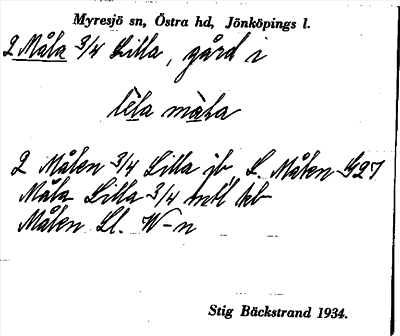 Myresjö sn, Östra hd, Jönköpings l.
2 Måla 3/4 Lilla, gård i
lila måla
2 Målen 3/4 Lilla jb L. Målen 1/4 27
Måla Lilla 3/4 mtl kb
Målen Ll. W-n
Stig Bäckstrand 1934.